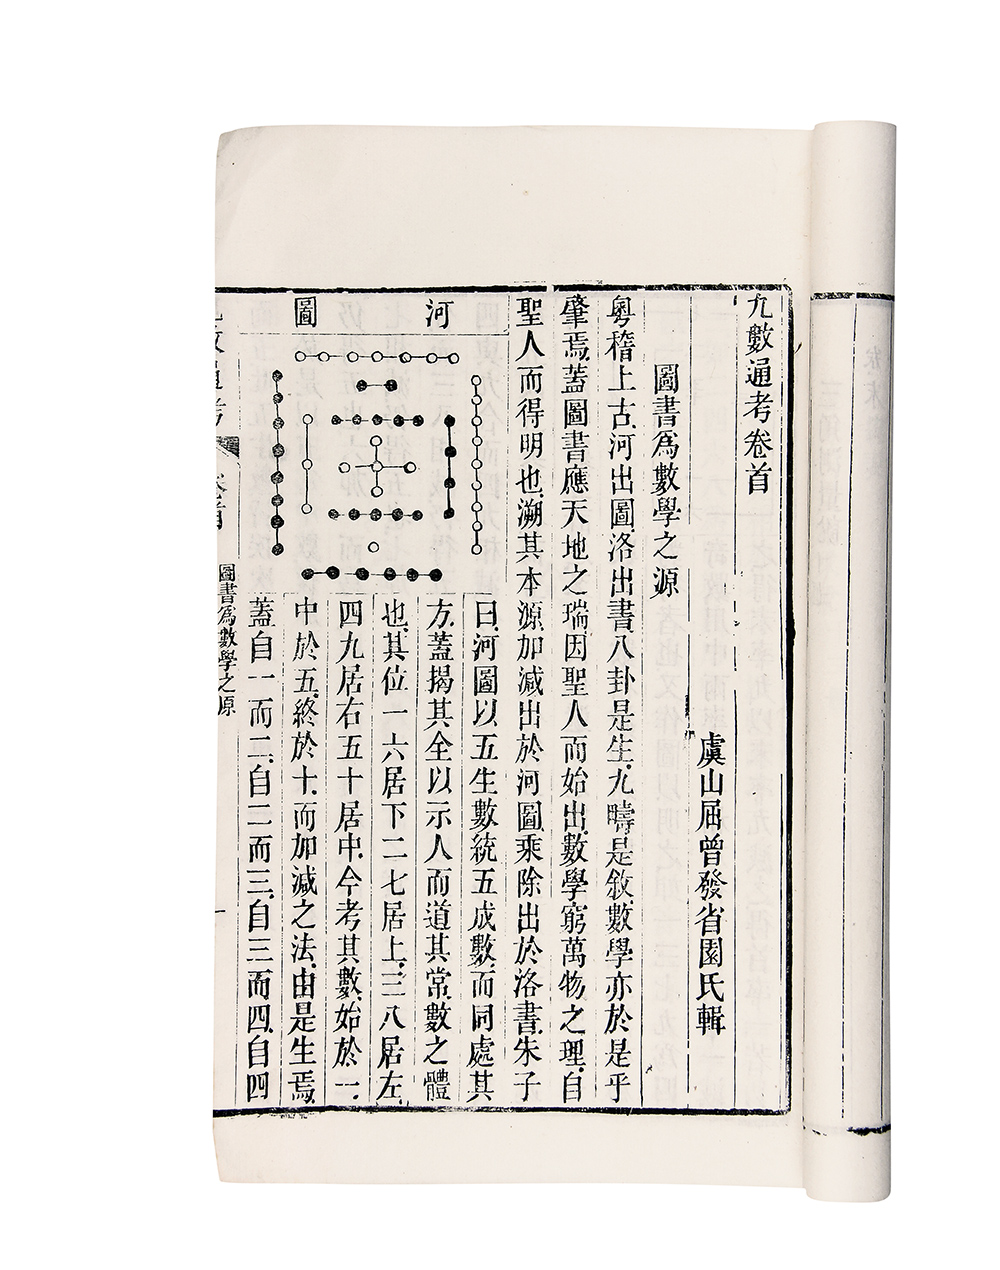 九數通考卷首
虞山屈曾發省園氏輯
圖書爲數學之源
粵稽上古、河出圖、洛出書、八卦是生、九疇是敘、數學亦於是乎
肇焉、蓋圖書應天地之瑞、因聖人而始出、數學窮萬物之理、自
聖人而得明也、溯其本源、加減出於河圖、乘除出於洛書、朱子
河圖
曰、河圖以五生數統五成數、而同處其
方、蓋揭其全以示人而道其常、數之體
也、其位一六居下、二七居上、三八居左、
四九居右、五十居中、今考其數、始於一、
中於五、終於十、而加減之法、由是生焉、
蓋自一而二、自二而三、自三而四、自四
九數通考
卷首
圖書爲數學之源
一